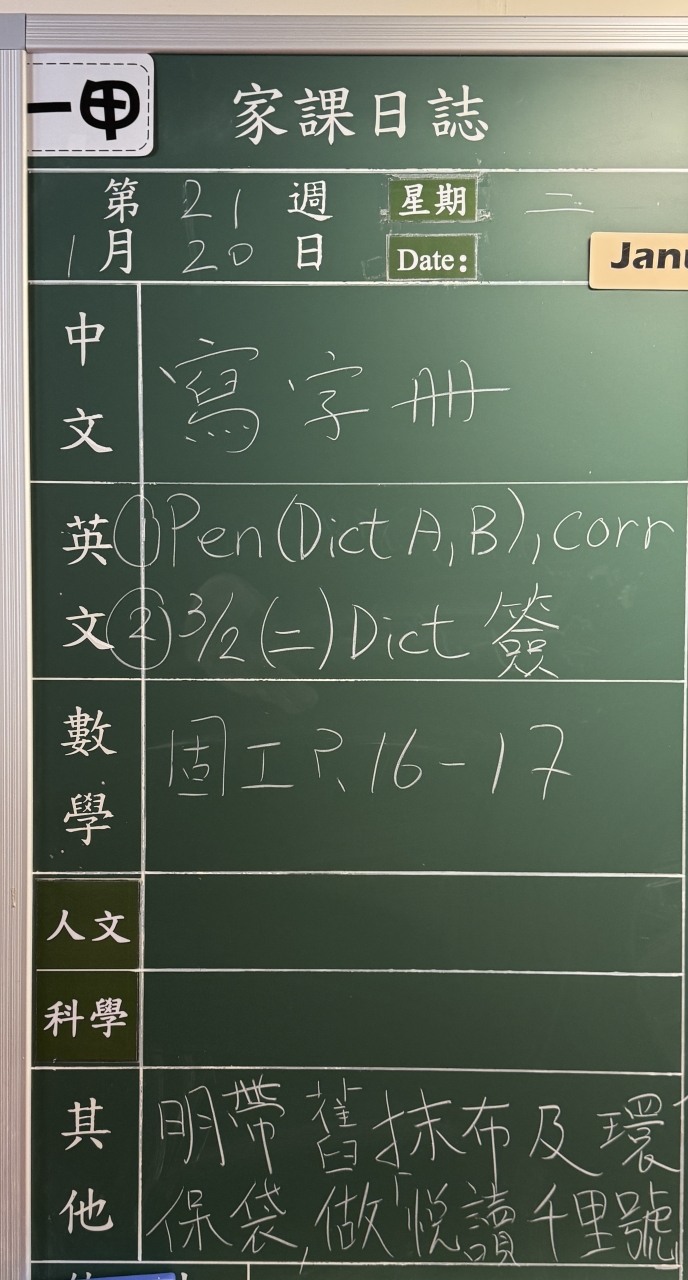 一甲
家課日誌
第 21 週 星期 二
1月 20 日 Date:
中文 寫字册
英文 ①Pen(Dict A,B),corr
②3/2(二)Dict 簽
數學 固工P.16-17
人文
科學
其他 明帶舊抹布及環
保袋,做「悅讀千里號